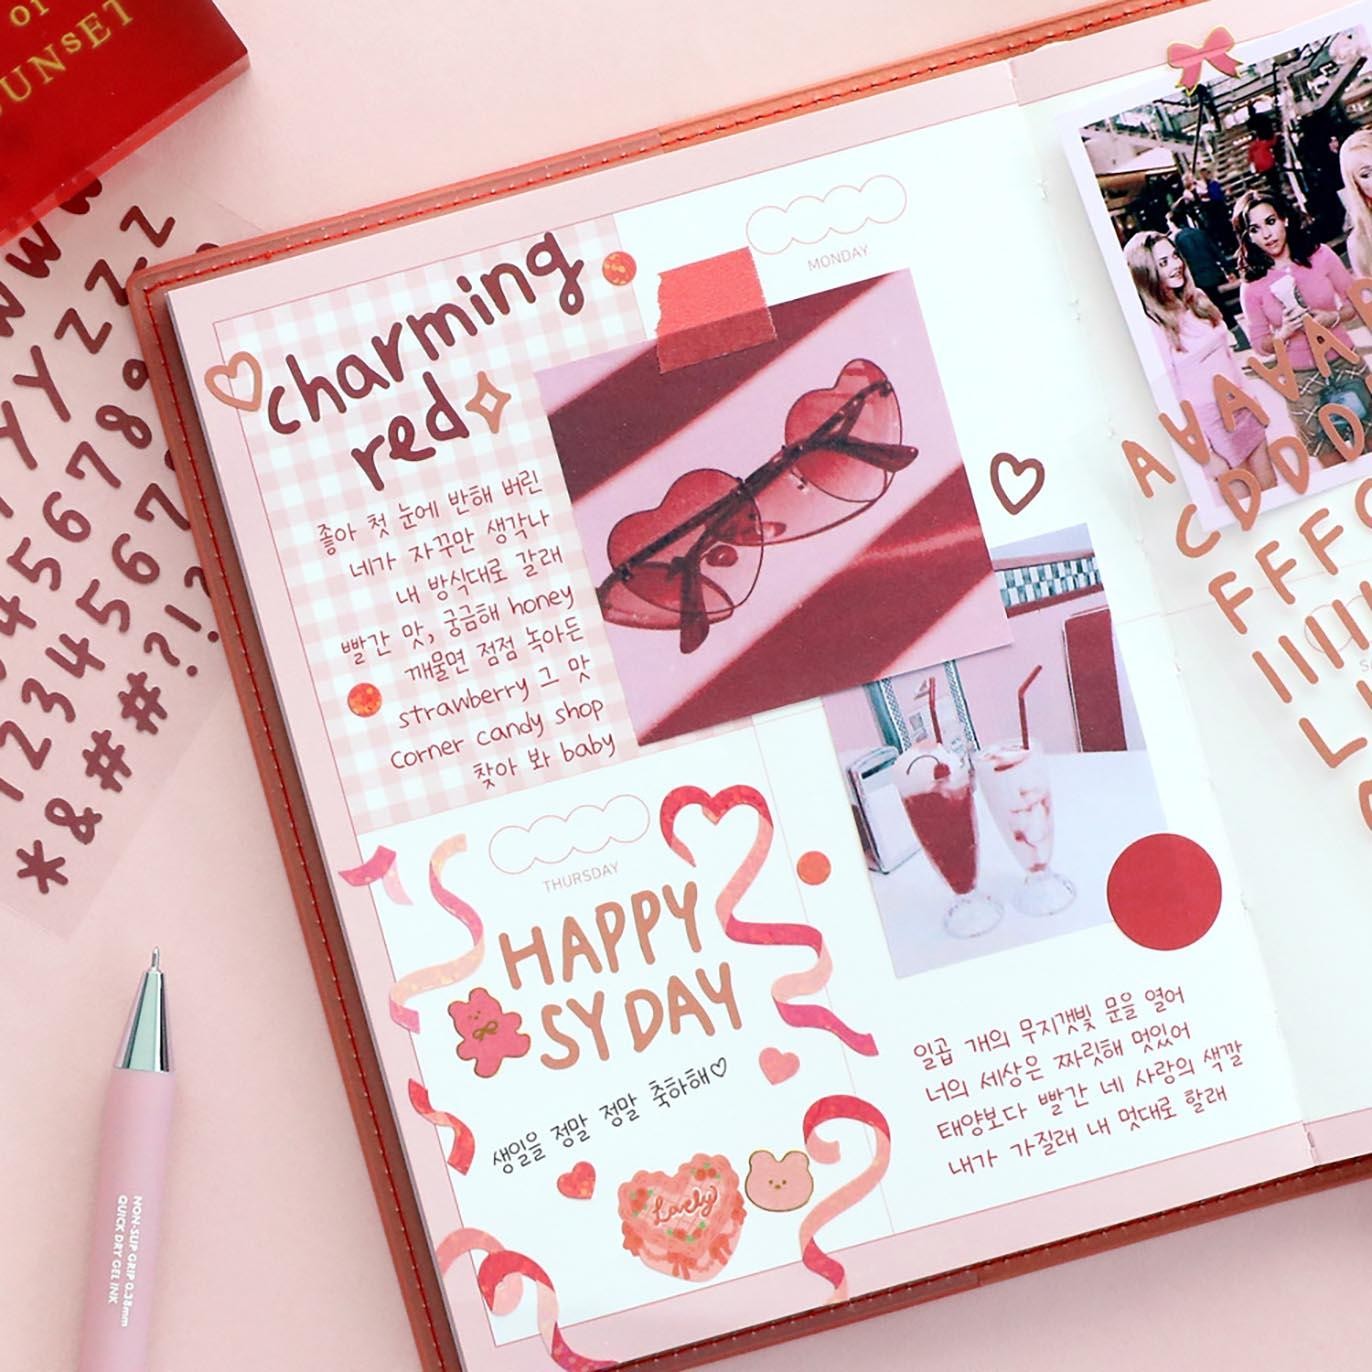 OF
SUNSET
W W
Y Y Z Z
4 5 6 7 8
1 2 3 4 5 6 7
* & # # ? !
charming
red
좋아 첫 눈에 반해 버린
네가 자꾸만 생각나
내 방식대로 갈래
빨간 맛, 궁금해 honey
깨물면 점점 녹아든
strawberry 그 맛
corner candy shop
찾아 봐 baby
MONDAY
THURSDAY
HAPPY
SY DAY
생일을 정말 정말 축하해♡
Lovely
일곱 개의 무지갯빛 문을 열어
너의 세상은 짜릿해 멋있어
태양보다 빨간 네 사랑의 색깔
내가 가질래 내 멋대로 할래
A A A A
C D D D D
F F F
I I I I I
L
NON-SLIP GRIP 0.38mm
QUICK DRY GEL INK